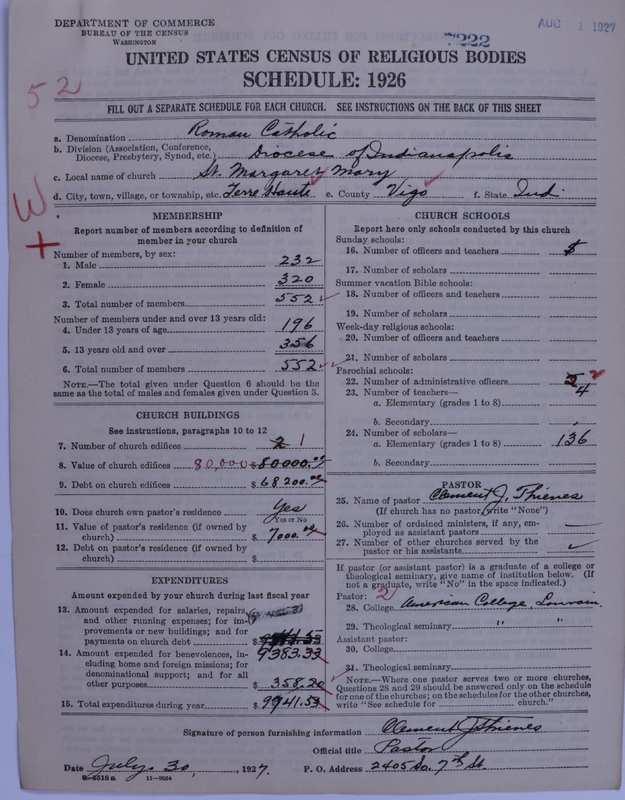 DEPARTMENT OF COMMERCE
BUREAU OF THE CENSUS
WASHINGTON
AUG 1 1927
7222
UNITED STATES CENSUS OF RELIGIOUS BODIES
SCHEDULE: 1926
52
FILL OUT A SEPARATE SCHEDULE FOR EACH CHURCH. SEE INSTRUCTIONS ON THE BACK OF THIS SHEET
a. Denomination Roman Catholic
b. Division (Association, Conference, Diocese, Presbytery, Synod, etc.) Diocese of Indianapolis
c. Local name of church St. Margaret Mary
d. City, town, village, or township, etc. Terre Haute e. County Vigo f. State Ind.
W.
+
MEMBERSHIP
Report number of members according to definition of
member in your church
Number of members, by sex:
1. Male 232
2. Female 320
3. Total number of members 552
Number of members under and over 13 years old:
4. Under 13 years of age 196
5. 13 years old and over 356
6. Total number of members 552
NOTE.—The total given under Question 6 should be
same as the total of males and females given under Question 3.
CHURCH BUILDINGS
See instructions, paragraphs 10 to 12
7. Number of church edifices 2 1
8. Value of church edifices 80,000 $80000.00
9. Debt on church edifices $68200.00
10. Does church own pastor's residence Yes
Yes or No
11. Value of pastor's residence (if owned by
church) $7000.00
12. Debt on pastor's residence (if owned by
church) $
EXPENDITURES
Amount expended by your church during last fiscal year
13. Amount expended for salaries, repairs,
and other running expenses; for im-
provements or new buildings; and for
payments on church debt $
9383.33
14. Amount expended for benevolences, in-
cluding home and foreign missions; for
denominational support; and for all
other purposes $358.20
15. Total expenditures during year $9741.53
CHURCH SCHOOLS
Report here only schools conducted by this church
Sunday schools:
16. Number of officers and teachers
17. Number of scholars
Summer vacation Bible schools:
18. Number of officers and teachers
19. Number of scholars
Week-day religious schools:
20. Number of officers and teachers
21. Number of scholars
Parochial schools:
22. Number of administrative officers
23. Number of teachers—
a. Elementary (grades 1 to 8) 4
b. Secondary
24. Number of scholars—
a. Elementary (grades 1 to 8) 136
b. Secondary
PASTOR
25. Name of pastor Clement J. Thienes
(If church has no pastor, write "None")
26. Number of ordained ministers, if any, em-
ployed as assistant pastors
27. Number of other churches served by the
pastor or his assistants
If pastor (or assistant pastor) is a graduate of a college or
theological seminary, give name of institution below. (If
not a graduate, write "No" in the space indicated.)
Pastor: 2
28. College American College, Louvain.
29. Theological seminary " "
Assistant pastor:
30. College
31. Theological seminary
NOTE.—Where one pastor serves two or more churches,
Questions 28 and 29 should be answered only on the schedule
for one of the churches; on the schedules for the other churches,
write "See schedule for church."
Signature of person furnishing information Clement J Thienes
Official title Pastor
Date July 30, 1927. P. O. Address 2405 So. 7th St.
8-6518a 11-9034